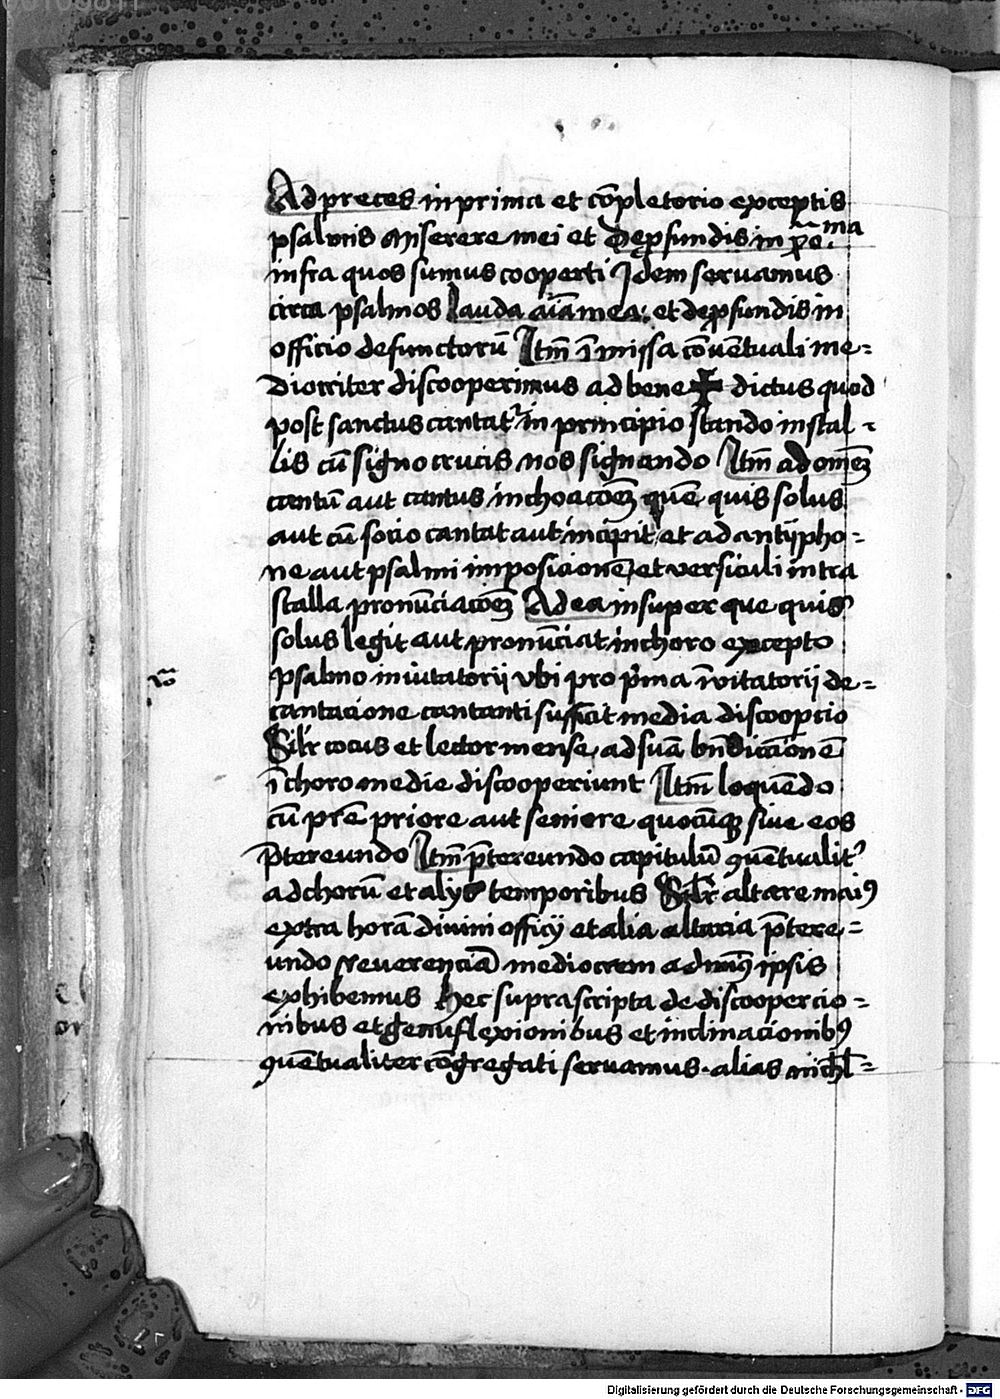 Ad preces in prima et co̅pletorio exceptis
psalmis Miserere mei et Dep̲fundis in
infra quos sumus cooperti Idem seruamus
circa psalmos Lauda ai̅a mea: et dep̲fundis in
officio defunctoru̅ Itm̅ i̅ missa co̅ue̅tuali me=
diocriter discooperimus ad bene ✝ dictus quod
post sanctus cantat᷑ in principio stando in stal=
lis cu̅ signo crucis nos signando Itm̅ ad om̅eʒ
cantu̅ aut cantus inchoaco̅eʒ que̅ quis solus
aut cu̅ socio cantat aut incipit et ad antiipho=
ne aut psalmi imposicione̅ et versiculi intra
stalla pronu̅ciaco̅eʒ Ad ea insuper que quis
solus legit aut pronu̅ciat in choro excepto
psalmo inuitatorij vbi pro p̅ma i̅vitatorij de=
cantacione cantanti sufficit media discoop̲cio
Sil̅r cocus et lector mense ad sua̅ bn̅dictione̅
i̅ choro medie discooperiunt Itm̅ loque̅do
cu̅ pr̅e priore aut seniore quocu̅qʒ siue eos
p̅tereundo Itm̅ p̅tereundo capitulu̅ ꝯue̅tualit᷑
ad choru̅ et alijs temporibus Sil̅r altare maiꝰ
extra hora̅ diuini officij et alia altaria p̅tere=
undo reuerencia̅ mediocrem ad minꝰ ipsis
exhibemus Hec suprascripta de discoopercio=
nibus et genuflexionibus et inclinacionibꝰ
ꝯue̅tualiter co̅gregati seruamus. alias nich̅l=
Digitalisierung gefördert durch die Deutsche Forschungsgemeinschaft - DFG